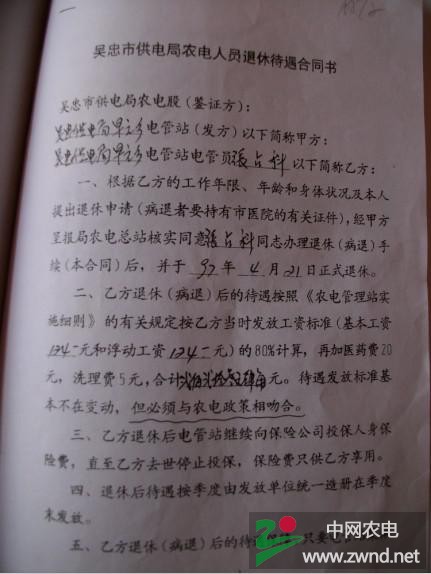 吴忠市供电局农电人员退休待遇合同书
吴忠市供电局农电股（鉴证方）：
电管站（发方）以下简称甲方：
电管站电管员张占科以下简称乙方：
一、根据乙方的工作年限、年龄和身体状况及本人
提出退休申请（病退者要持有市医院的有关证件），经甲方
呈报局农电总站核实同意张占科同志办理退休（病退）手
续（本合同）后，并于97年4月21日正式退休。
二、乙方退休（病退）后的待遇按照《农电管理站实
施细则》的有关规定按乙方当时发放工资标准（基本工资
124元和浮动工资124元）的80%计算，再加医药费20
元，洗理费5元，合计元。待遇发放标准基
本不在变动，但必须与农电政策相吻合。
三、乙方退休后电管站继续向保险公司投保人身保
险费，直至乙方去世停止投保，保险费只供乙方享用。
四、退休后待遇按季度由发放单位统一造册在季度
末发放。
五、乙方退休（病退）后的待遇只要
中网农电
www.zwnd.net